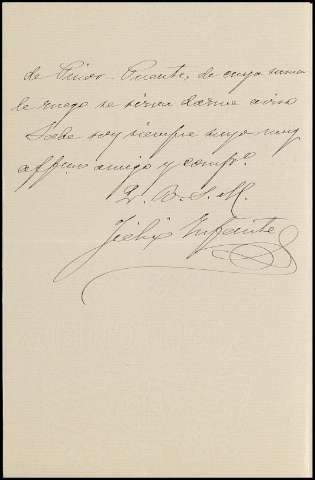 de Pinos-Puente, de cuya suma
le ruego se sirva darme aviso
Sabe soy siempre suyo muy
affmo amigo y compo.
Q. B. S. M.
Felix Infante